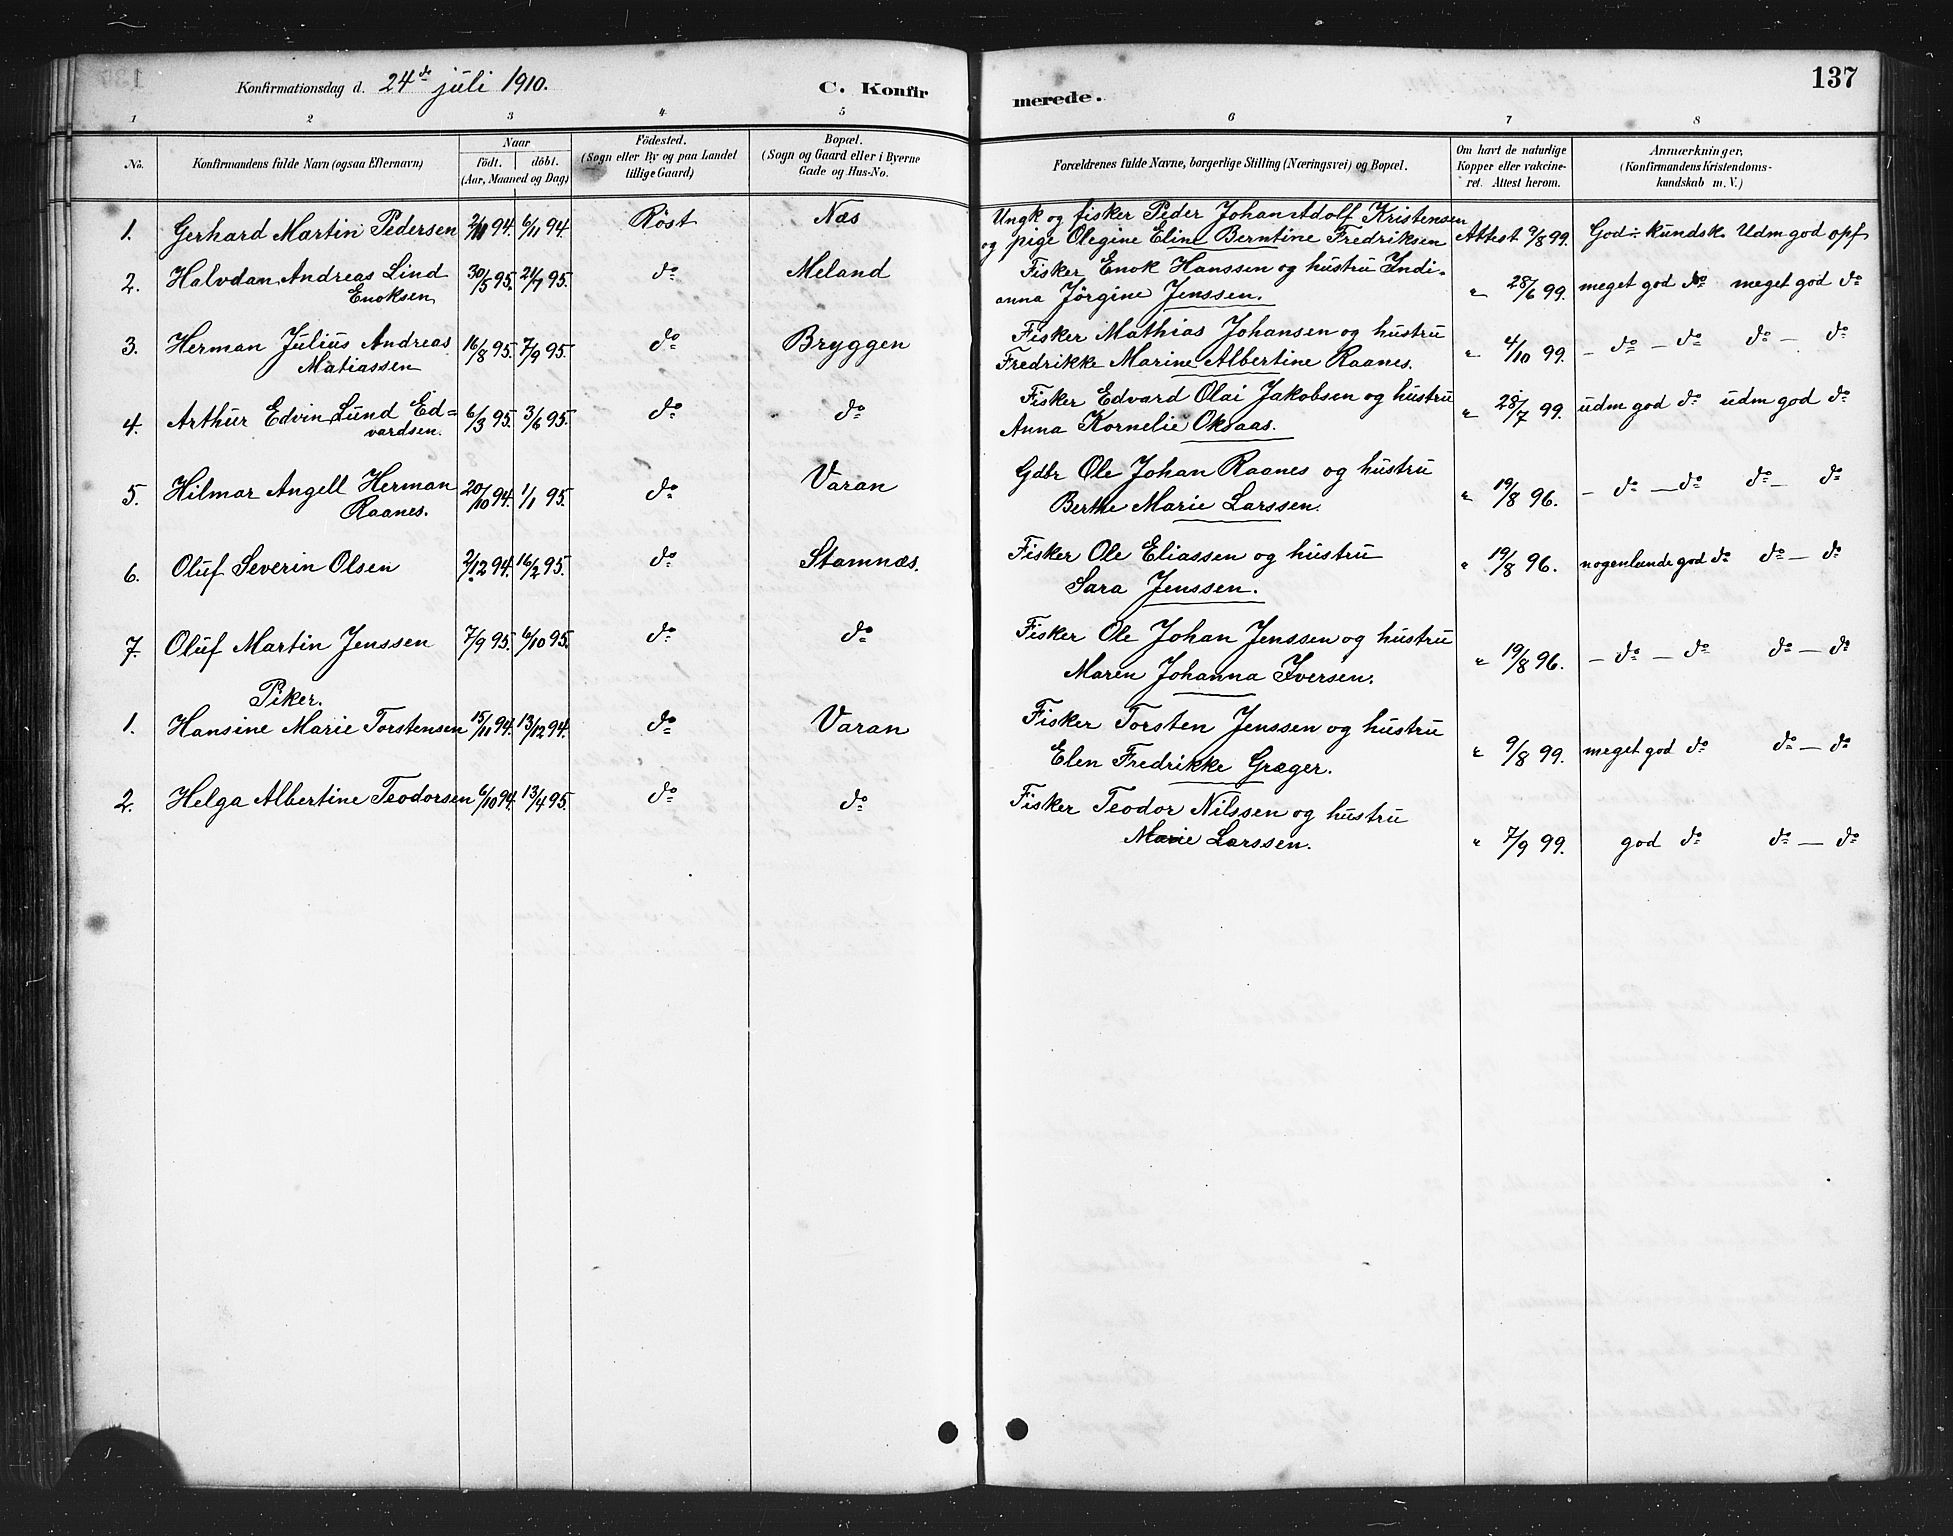 137
Konfirmationsdag d. 24de juli 1910. C. Konfirmerede.
1 2 3 4 5 6 7 8
No. Konfirmandens fulde Navn (ogsaa Efternavn) Naar født. døbt. (Aar, Maaned og Dag) Födested. (Sogn eller By og paa Landet tillige Gaard) Bopæl. (Sogn og Gaard eller i Byerne Gade og Hus-No. Forældrenes fulde Navne, borgerlige Stilling (Næringsvei) og Bopæl. Om havt de naturlige Kopper eller vakcineret. Attest herom. Anmærkninger, (Konfirmandens Kristendomskundskab m. V.)
1. Gerhard Martin Pedersen 2/11 94. 6/11 94. Röst Næs Ungk og fisker Peder Johan Adolf Kristensen
og pige Olegine Eline Berntine Fredriksen Attest 9/8 99. God ÷ kundsk. Udm god opf
2. Halvdan Andreas Lind 30/5 95. 21/7 95. do Meland Fisker Enok Hanssen og hustru Indi-
Enoksen anna Jörgine Jenssen. " 28/6 99. meget god do meget god do
3. Herman Julius Andreas 16/8 95. 7/9 95. do Bryggen Fisker Mathias Johansen og hustru
Matiassen Fredrikke Marine Albertine Raanes. " 4/10 99. - do - do do - do
4. Arthur Edvin Lund Ed= 6/3 95. 3/6 95. do do Fisker Edvard Olai Jakobsen og hustru
vardsen. Anna Kornelie Oksaas. " 28/7 99. udm god do udm god do
5. Hilmar Angell Herman 20/10 94. 1/1 95. do Varan Gdbr Ole Johan Raanes og hustru
Raanes. Berthe Marie Larssen. " 19/8 96. - do - do do - do
6. Oluf Severin Olsen 2/12 94. 16/2 95. do Stamnæs. Fisker Ole Eliassen og hustru
Sara Jenssen. " 19/8 96. nogenlunde god do do - do
7. Oluf Martin Jenssen 7/9 95. 6/10 95. do do Fisker Ole Johan Jenssen og hustru
Maren Johanna Iversen. " 19/8 96. - do - do do - do
Piker.
1. Hansine Marie Torstensen 15/11 94. 13/12 94. do Varan Fisker Torsten Jenssen og hustru
Elen Fredrikke Græger. " 9/8 99. meget god do do - do
2. Helga Albertine Teodorsen 6/10 94. 13/4 95. do do Fisker Teodor Nilssen og hustru
Marie Larssen. " 7/9 99. god do do - do